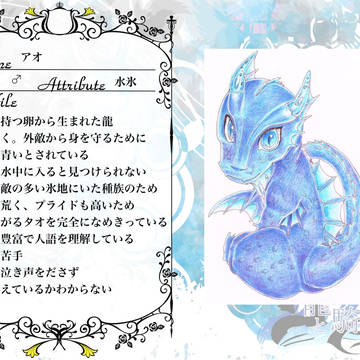 アオ
♂ Attribute 水氷
持つ卵から生まれた龍
く。外敵から身を守るために
青いとされている
水中に入ると見つけられない
敵の多い氷地にいた種族のため
荒く、プライドも高いため
がるタオを完全になめきっている
豊富で人語を理解している
苦手
泣き声をださず
えているかわからない